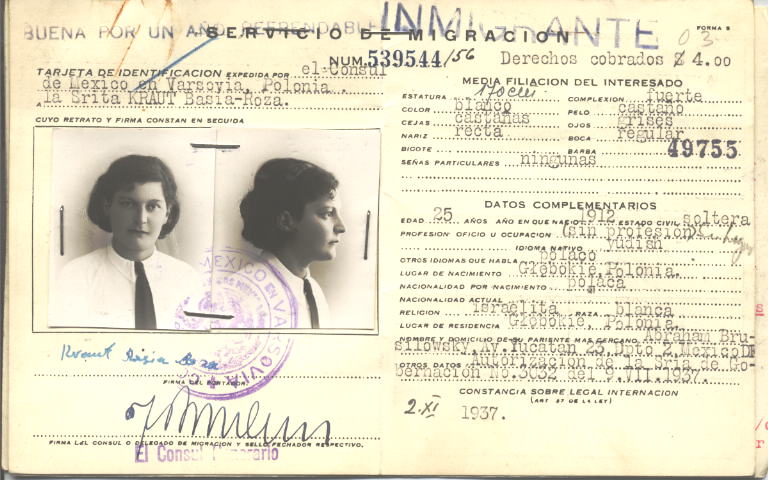 BUENA POR UN AÑO REFRENDABLE INMIGRANTE
SERVICIO DE MIGRACION
FORMA 5
NUM. 539544/56
TARJETA DE IDENTIFICACION EXPEDIDA POR el Consul
de Mexico en Varsovia, Polonia.
A la Srita KRAUT Basia-Roza.
CUYO RETRATO Y FIRMA CONSTAN EN SEGUIDA
MEXICO EN VARSOVIA
Kraut Basia Roza
FIRMA DEL PORTADOR.
FIRMA DEL CONSUL O DELEGADO DE MIGRACION Y SELLO FECHADOR RESPECTIVO.
El Consul Honorario
Derechos cobrados $ 4.00
MEDIA FILIACION DEL INTERESADO
ESTATURA 170 cm COMPLEXION fuerte
COLOR blanco PELO castaño
CEJAS castañas OJOS grises
NARIZ recta BOCA regular
BIGOTE BARBA 49755
SEÑAS PARTICULARES ningunas
DATOS COMPLEMENTARIOS
EDAD 25 AÑOS AÑO EN QUE NACIO 1912 ESTADO CIVIL soltera
PROFESION OFICIO U OCUPACION (sin profesion)
IDIOMA NATIVO yudish
OTROS IDIOMAS QUE HABLA polaco
LUGAR DE NACIMIENTO Głębokie, Polonia.
NACIONALIDAD POR NACIMIENTO polaca
NACIONALIDAD ACTUAL
RELIGION israelita RAZA blanca
LUGAR DE RESIDENCIA Głębokie, Polonia
NOMBRE Y DOMICILIO DE SU PARIENTE MAS CERCANO Abraham Bru-
silowsky, Av. Yucatan 23, Dpto 2, Mexico DF
OTROS DATOS Autorizacion de la Sria de Go-
bernacion No. 3032 del 9.III.1937.
CONSTANCIA SOBRE LEGAL INTERNACION
(ART 57 DE LA LEY)
2.XI 1937.